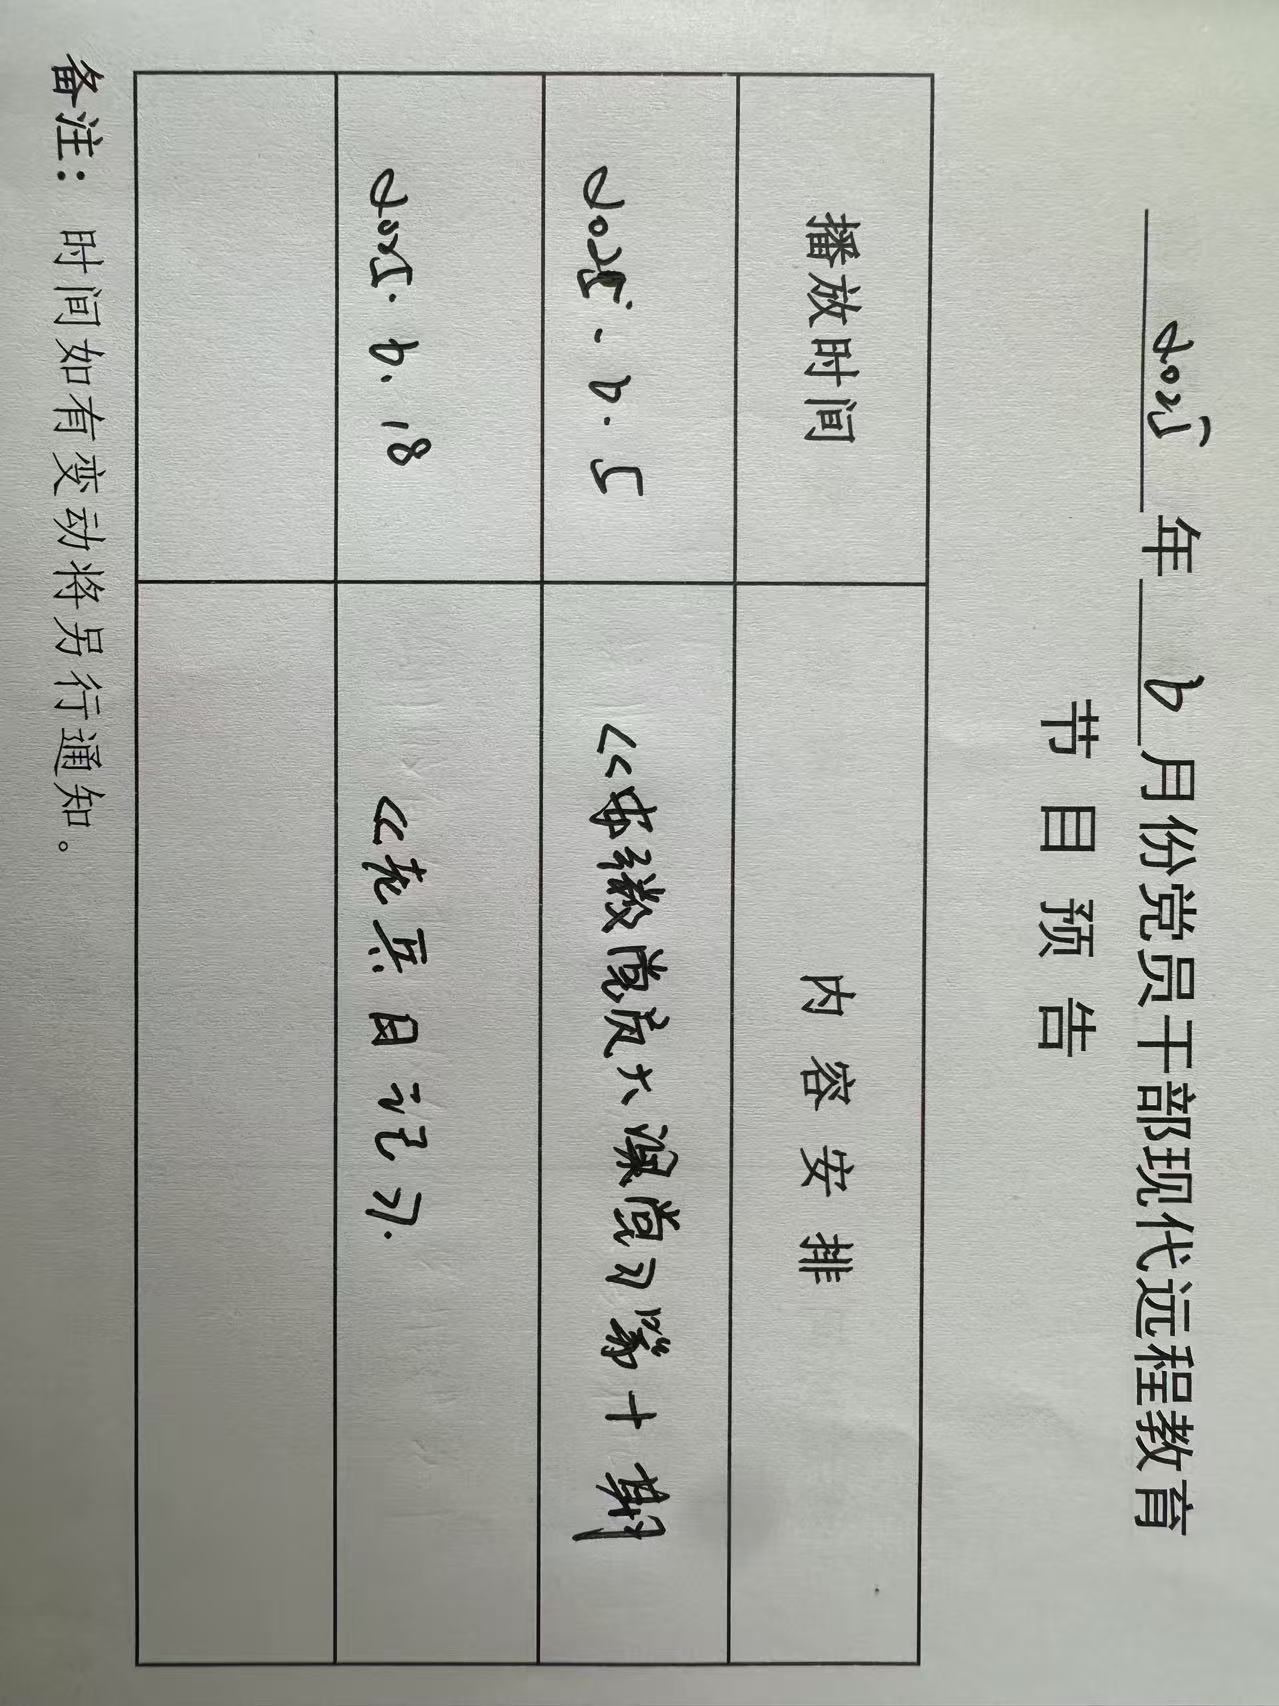 2025年6月份党员干部现代远程教育
节目预告
播放时间 内容安排
2025.6.5 《安徽党员大课堂》第十期
2025.6.18 《老兵日记》.
备注：时间如有变动将另行通知。